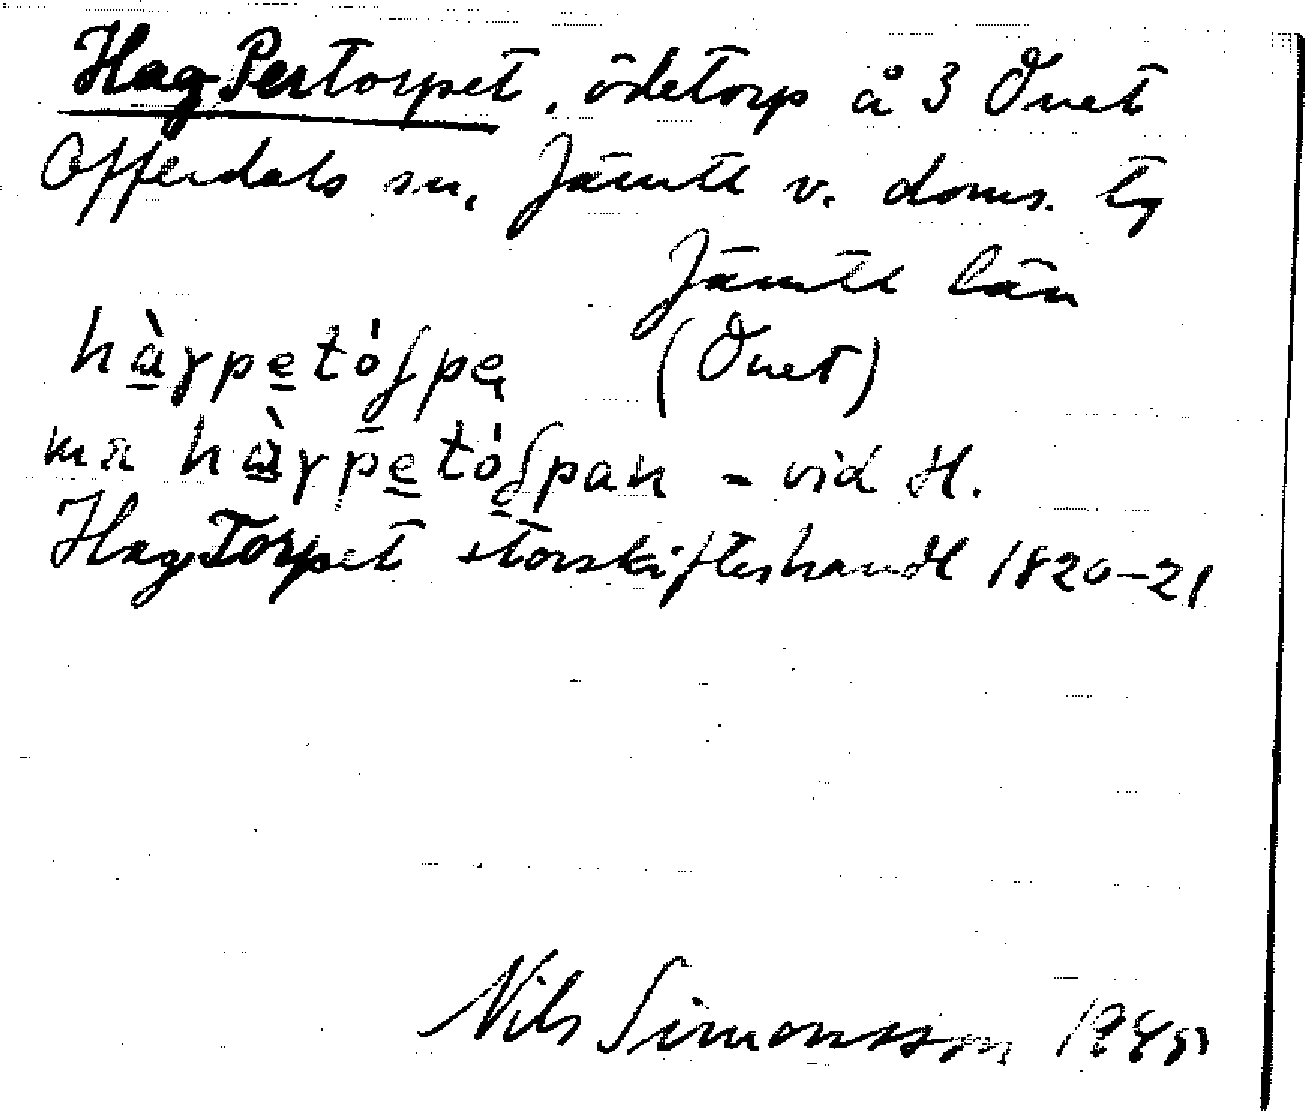 Hag-Pertorpet, ödetorp å 3 Önet
Offerdals sn, Jämtl v. doms. tg
Jämtl län
hàɣpetóʃpe̢ (Önet)
hàɣpetóʃpan - vid H.
HagTorpet storskifteshandl 1820-21
Nils Simonsson